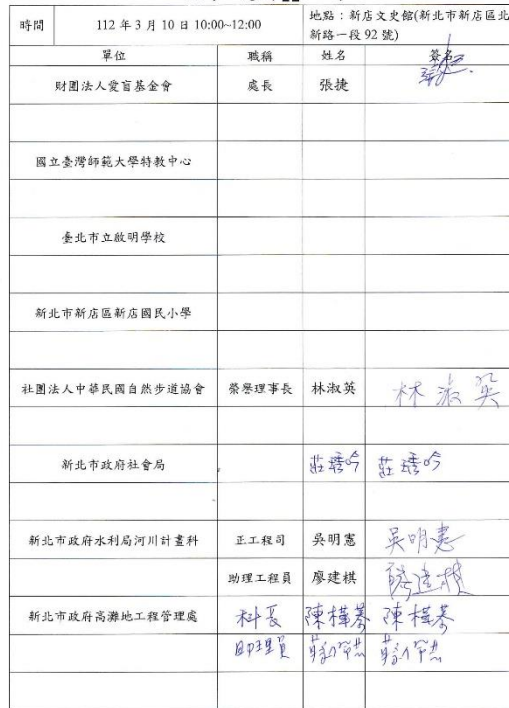 時間 112 年 3 月 10 日 10:00~12:00 地點：新店文史館(新北市新店區北新路一段 92 號)
單位 職稱 姓名 簽名
財團法人愛盲基金會 處長 張捷
國立臺灣師範大學特教中心
臺北市立啟明學校
新北市新店區新店國民小學
社團法人中華民國自然步道協會 榮譽理事長 林淑英 林淑英
新北市政府社會局
新北市政府水利局河川計畫科 正工程司 吳明憲 吳明憲
助理工程員 廖建棋 廖建棋
新北市政府高灘地工程管理處 科長
助理員